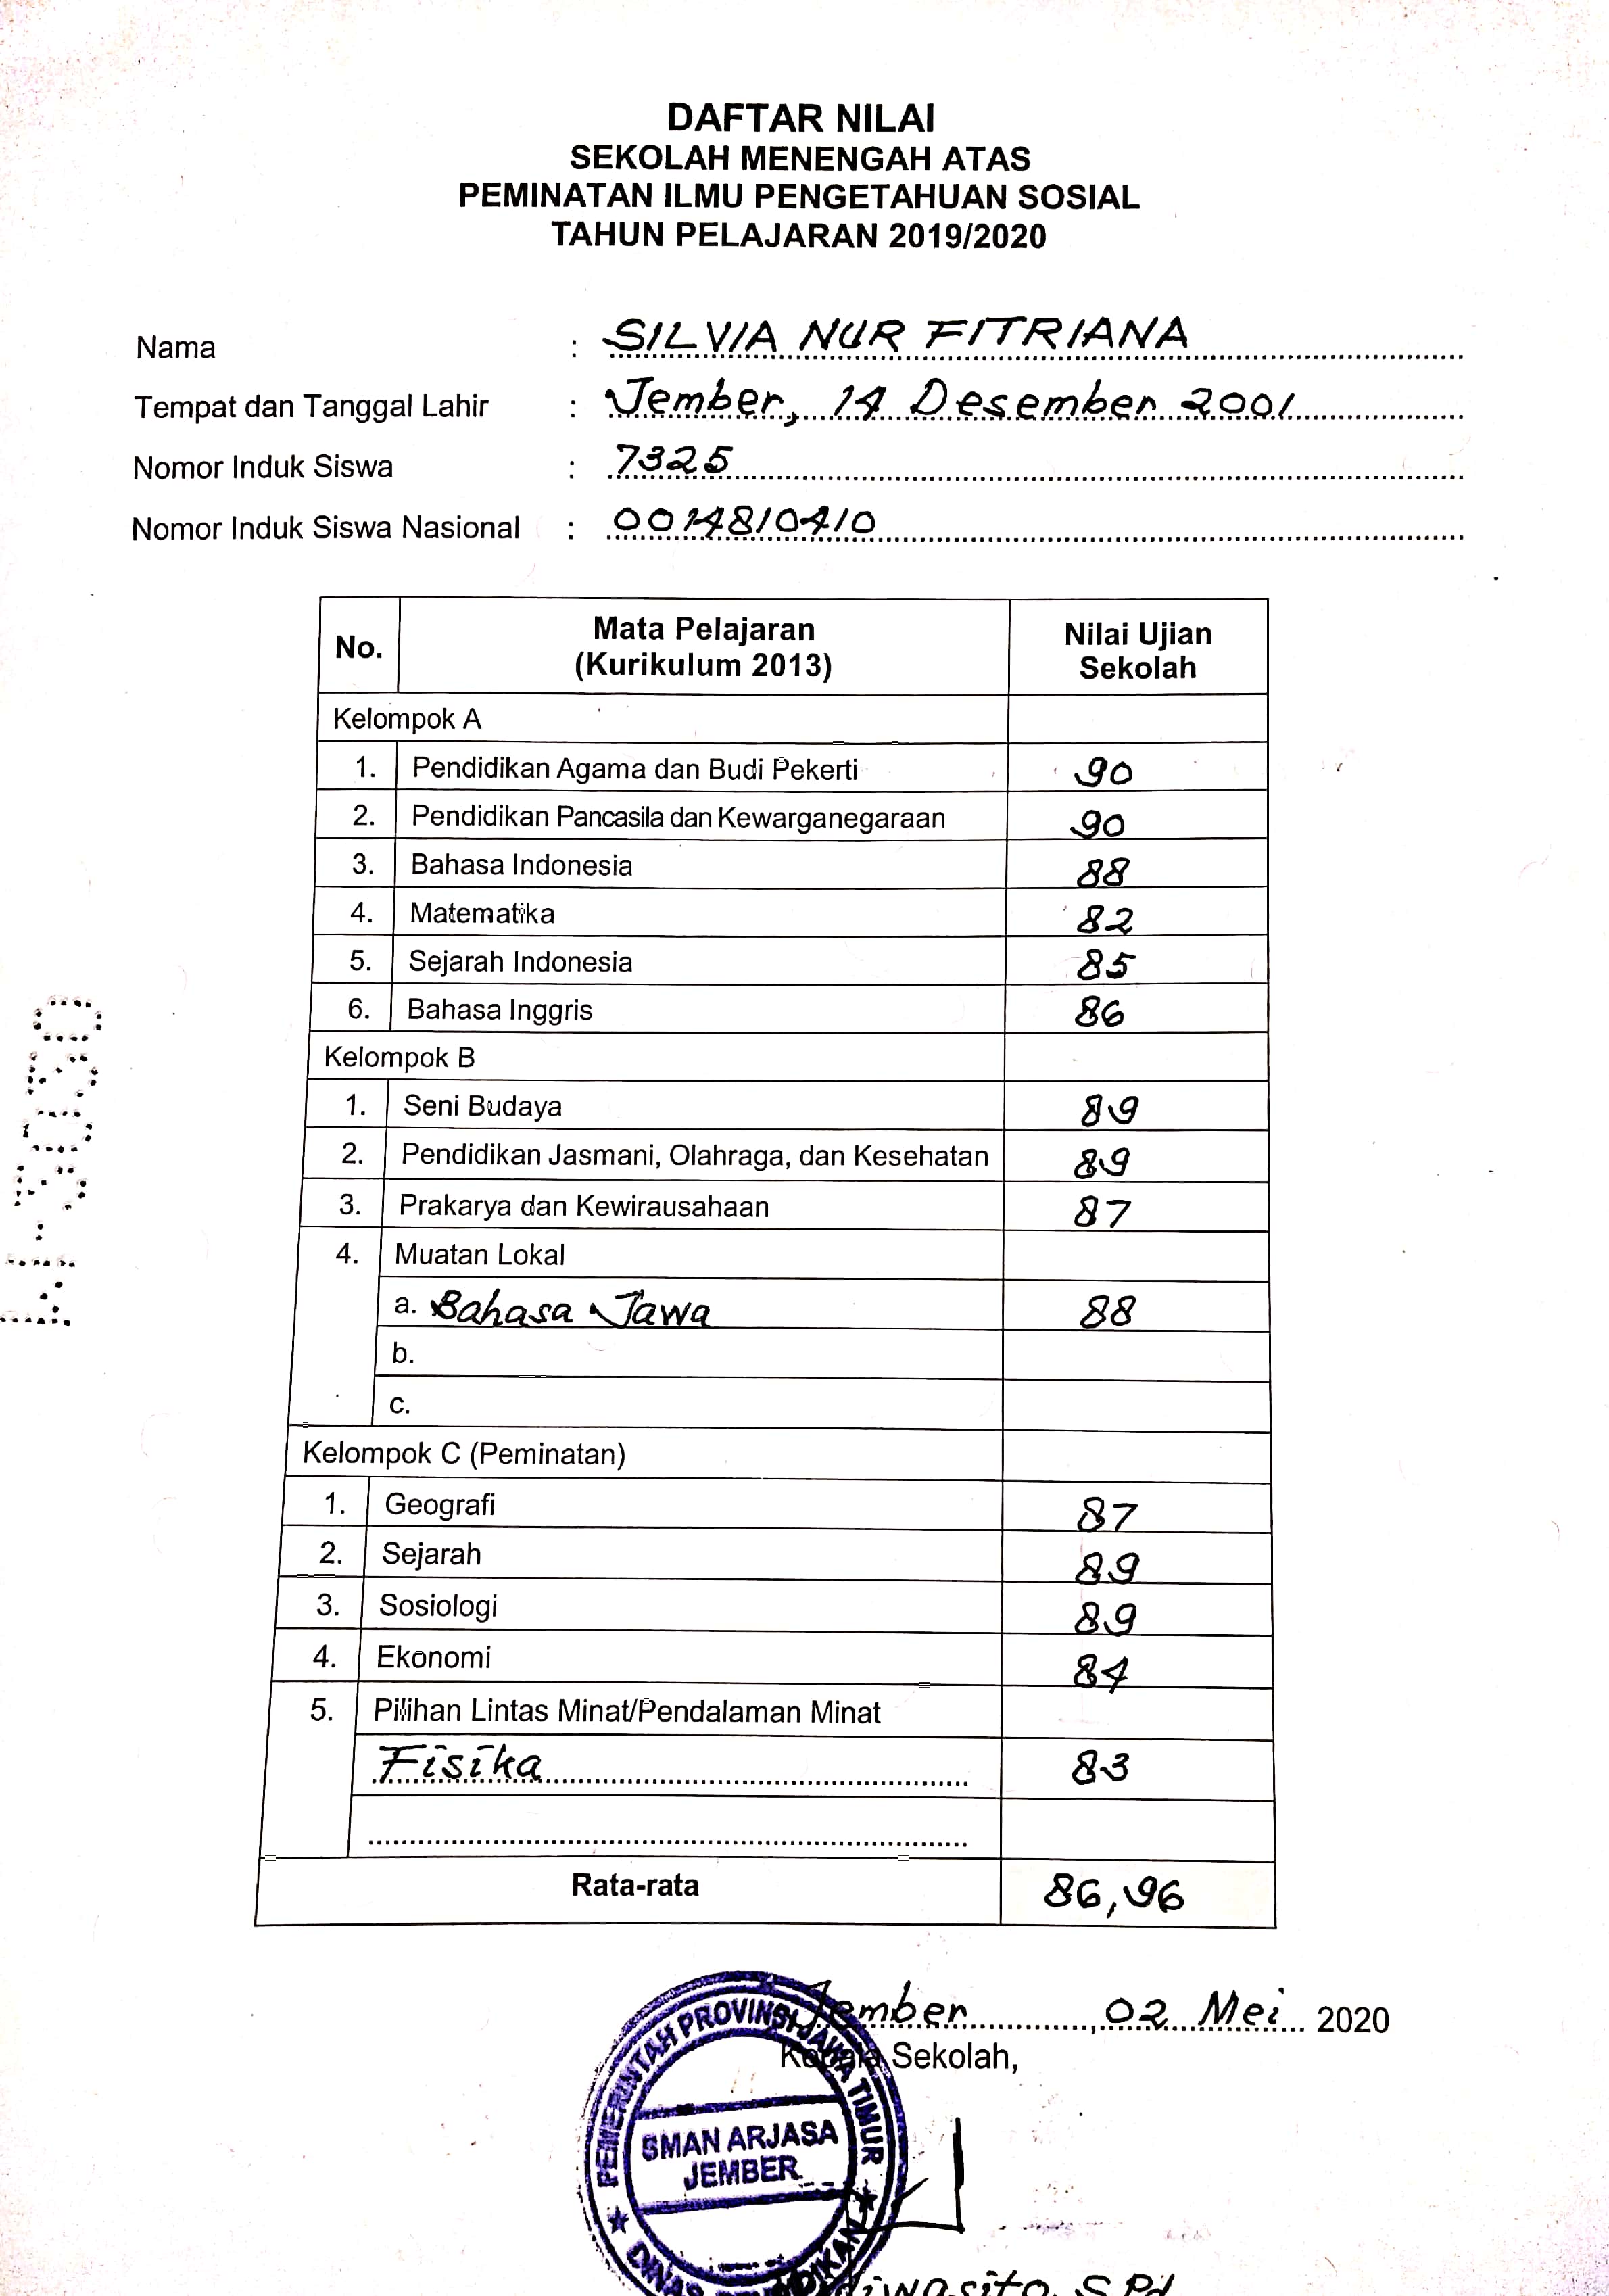 DAFTAR NILAI
SEKOLAH MENENGAH ATAS
PEMINATAN ILMU PENGETAHUAN SOSIAL
TAHUN PELAJARAN 2019/2020
Nama : SILVIA NUR FITRIANA
Tempat dan Tanggal Lahir : Jember, 14 Desember 2001
Nomor Induk Siswa : 7325
Nomor Induk Siswa Nasional : 0014810410
No. Mata Pelajaran (Kurikulum 2013) Nilai Ujian Sekolah
Kelompok A
1. Pendidikan Agama dan Budi Pekerti 90
2. Pendidikan Pancasila dan Kewarganegaraan 90
3. Bahasa Indonesia 88
4. Matematika 82
5. Sejarah Indonesia 85
6. Bahasa Inggris 86
Kelompok B
1. Seni Budaya 89
2. Pendidikan Jasmani, Olahraga, dan Kesehatan 89
3. Prakarya dan Kewirausahaan 87
4. Muatan Lokal
a. Bahasa Jawa 88
b.
c.
Kelompok C (Peminatan)
1. Geografi 87
2. Sejarah 89
3. Sosiologi 89
4. Ekonomi 84
5. Pilihan Lintas Minat/Pendalaman Minat
Fisika 83
Rata-rata 86,96
Jember, 02 Mei 2020
Kepala Sekolah,
PEMERINTAH PROVINSI JAWA TIMUR
SMAN ARJASA
JEMBER
DINAS PENDIDIKAN
S.Pd